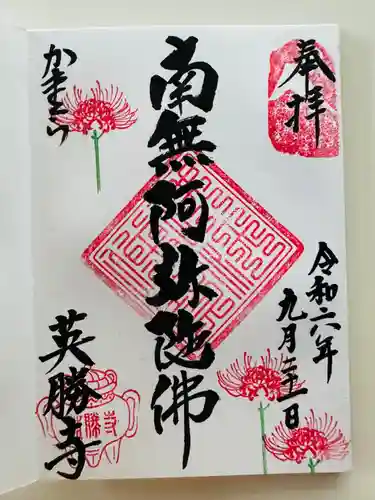 奉拝
令和六年
九月二十一日
南無阿弥陀佛
かまくら
英勝寺